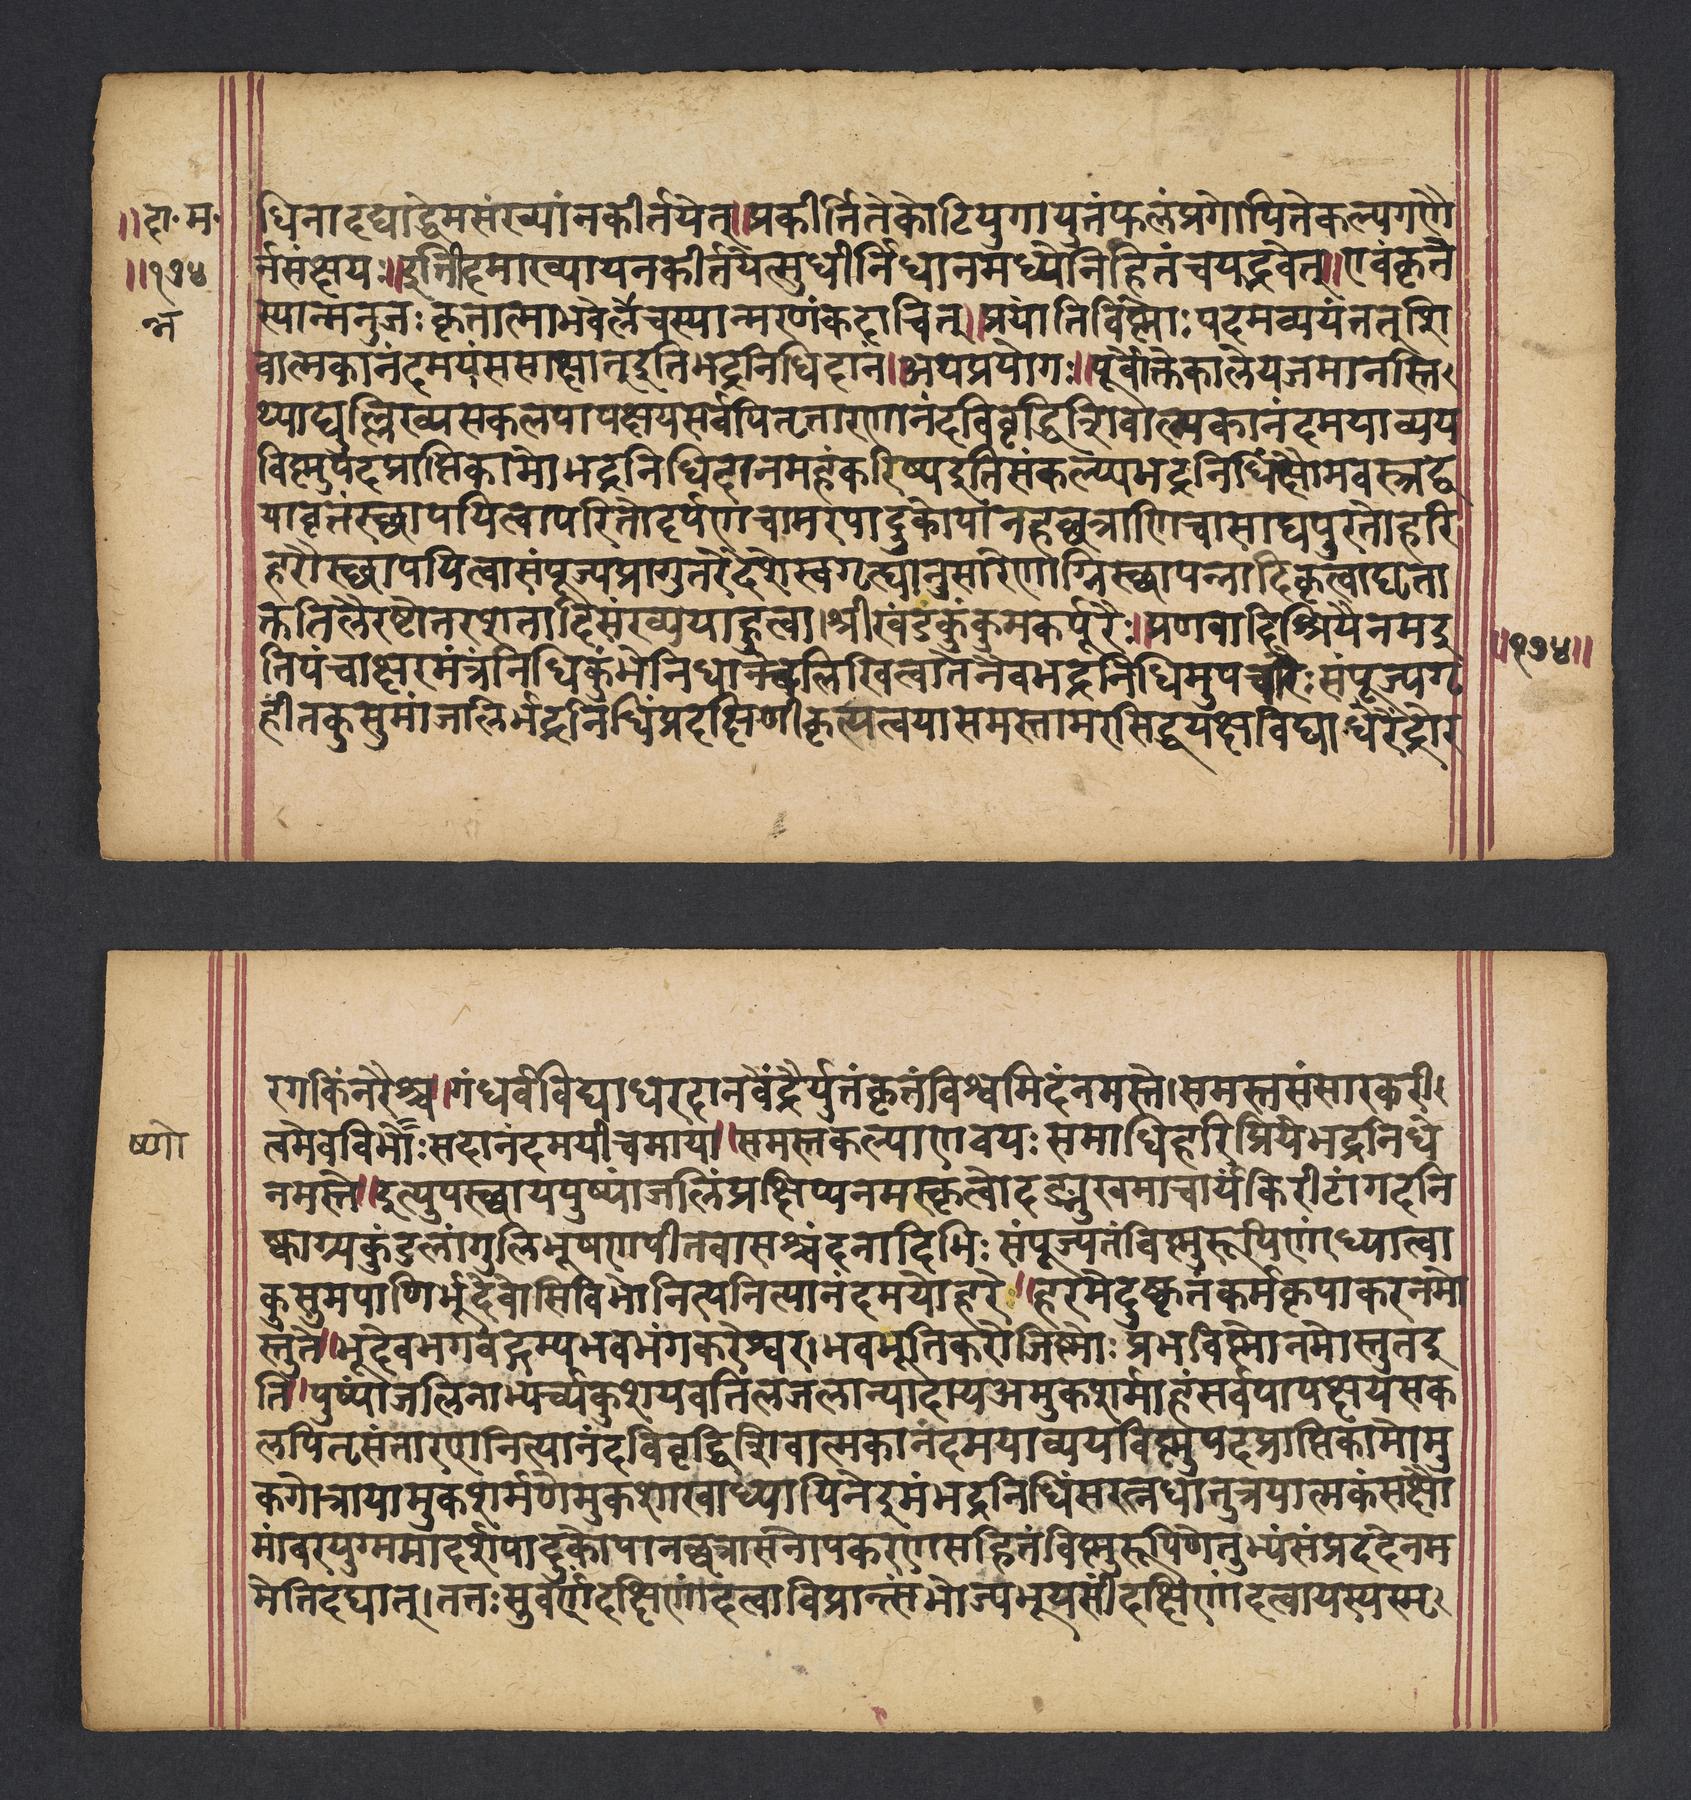 ॥दा॰म॰
॥१७४
भ
धिनादद्याद्धेमसंख्यांनकीर्तयेत्॥प्रकीर्त्तितेकोटियुगायुतंफलंप्रगोपितेकल्पगणै
र्नसंक्षयः॥इतीहमाख्यायनकीर्तयेत्सुधीर्निधानमध्येनिहितंचयद्भवेत्॥एवंकृते
स्यान्मनुजःकृतात्माभवेर्न्नचस्यान्मरणंकदाचित्॥प्रयातिविष्णोःपदमव्ययंतत्शि
वात्मकानंदमयंससाक्षात्इतिभद्रनिधिदानं॥अथप्रयोगः॥पूर्वोक्तेकालेयजमानस्ति
थ्याद्युल्लिख्यसकलपापक्षयसर्वपितृतारणानंदविवृद्धिशिवात्मकानंदमयाव्यय
विष्णुपदप्राप्तिकामोभद्रनिधिदानमहंकरिष्यइतिसंकल्प्यभद्रनिधिंक्षौमवस्त्रद्व
यावृतंस्थापयित्वापरितोदर्पणचामरपादुकोपानहछत्राणिचासाद्यपुरतोहरि
हरौस्थापयित्वासंपूज्यप्रागुत्तरेदेशेस्वगृह्यानुसारेणाग्निस्थापनादिकृत्वाघृता
क्ततिलैरष्टोत्तरशतादिसंख्ययाहुत्वा।श्रीखंडकुंकुमकर्पूरैः॥प्रणवादिश्रियैनमइ
तिपंचाक्षरमंत्रंनिधिकुंभेनिधानेचलिखित्वातेनैवभद्रनिधिमुपचारैःसंपूज्यगृ
हीतकुसुमांजलिर्भद्रनिधिंप्रदक्षिणीकृत्यत्वयासमस्तामरसिद्धयक्षविद्याधरेंद्रोर
॥१७४॥
रगकिंनरैश्च॥गंधर्वविद्याधरदानवेंद्रैर्युतंकृतंविश्वमिदंनमस्ते।समस्तसंसारकरी
त्वमेवविभोःसदानंदमयीचमाया॥समस्तकल्याणवयःसमाधिहरिप्रियेभद्रनिधे
ष्णो
नमस्ते॥इत्युपस्थायपुष्पांजलिंप्रक्षिप्यनमस्कृत्वोदङ्मुखमाचार्यंकिरीटांगदनि
ष्काग्र्यकुंडलांगुलिभूषणपीतवासश्चंदनादिभिःसंपूज्यतंविष्णुरूपिणंध्यात्वा
कुसुमपाणिर्भूदेवोसिविभोनित्यनित्यानंदमयोहरे॥हरमेदुष्कृतंकर्मकृपाकरनमो
स्तुते॥भूदेवभगवद्गम्यभवभंगकरेश्वर।भवभूतिकरोजिष्णोःप्रभविष्णोनमोस्तुतइ
ति॥पुष्पांजलिनाभ्यर्च्यकुशयवतिलजलान्यादायअमुकशर्माहंसर्वपापक्षयसक
लपितृसंतारणनित्यानंदविवृद्धिशिवात्मकानंदमयाव्ययविष्णुपदप्राप्तिकामोमु
कगोत्रायामुकशर्मणेमुकशाखाध्यायिनेइमंभद्रनिधिंसरत्नधातुत्रयात्मकंसक्षौ
मांबरयुग्ममादर्शपादुकोपानच्छत्रासनोपकरणसहितंविष्णुरूपिणेतुभ्यंसंप्रददेनम
मेतिदद्यात्।ततःसुवर्णंदक्षिणांदत्वाविप्रान्संभोज्यभूयसींदक्षिणांदत्वायस्यस्मृ